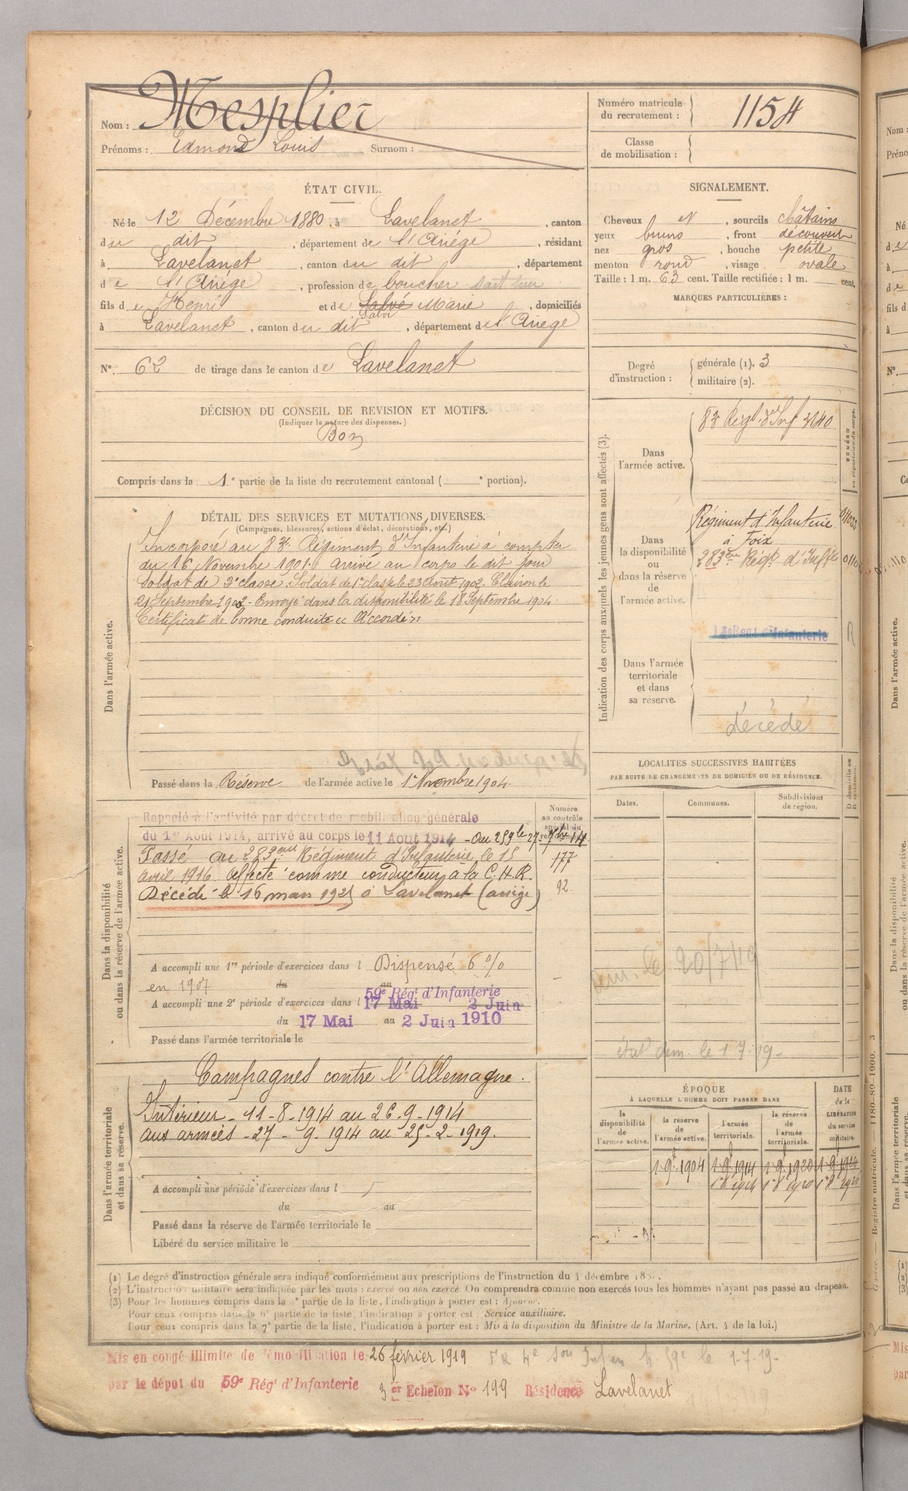 Nom : Mesplier
Prénoms : Edmond Louis Surnom :
Numéro matricule du recrutement : 1154
Classe de mobilisation :
ÉTAT CIVIL.
Né le 12 Décembre 1880, à Lavelanet, canton
du dit, département de l'Ariège, résidant
à Lavelanet, canton du dit, département
de l'Ariège, profession de boucher
fils de Henri et de Salvé Marie, domiciliés
Salvi
à Lavelanet, canton du dit, département de l'Ariège
N° 62 de tirage dans le canton de Lavelanet
SIGNALEMENT.
Cheveux N, sourcils châtains
yeux bruns, front découvert
nez gros, bouche petite
menton rond, visage ovale
Taille : 1 m. 63 cent. Taille rectifiée : 1 m. cent.
MARQUES PARTICULIÈRES :
Degré d'instruction : générale (1). 3
militaire (2).
DÉCISION DU CONSEIL DE REVISION ET MOTIFS.
(Indiquer la nature des dispenses.)
Bon
Compris dans la 1e partie de la liste du recrutement cantonal ( e portion).
DÉTAIL DES SERVICES ET MUTATIONS DIVERSES.
(Campagnes, blessures, actions d'éclat, décorations, etc.)
Dans l'armée active.
Incorporé au 83e Régiment d'Infanterie à compter
du 16 Novembre 1901. arrivé au corps le dit jour
Soldat de 2e classe. Soldat de 1e classe le 23 Août 1902. Clairon le
21 Septembre 1903. Envoyé dans la disponibilité le 18 Septembre 1904.
Certificat de bonne conduite Accordé
Passé dans la Réserve de l'armée active le 1er Novembre 1904
Indication des corps auxquels les jeunes gens sont affectés (3).
Dans l'armée active.
83 Régt d'Inf 3140
Dans la disponibilité ou dans la réserve de l'armée active.
Régiment d'Infanterie
à Foix
283ème Régt d'Inf
Dans l'armée territoriale et dans sa réserve.
décédé
LOCALITÉS SUCCESSIVES HABITÉES
PAR SUITE DE CHANGEMENTS DE DOMICILE OU DE RÉSIDENCE.
Dates. Communes. Subdivisions de région.
20/7/19
Dans la disponibilité ou dans la réserve de l'armée active.
Rappelé à l'activité par décret de mobilisation générale
du 1er Août 1914, arrivé au corps le 11 Août 1914 - Au 259 le 27-9bre 14
Passé au 283ème Régiment d'Infanterie le 15
avril 1916 affecté comme conducteur à la C.H.R.
Décédé le 16 mars 1921 à Lavelanet (ariège)
177
92
A accompli une 1re période d'exercices dans l Dispensé 6 %
en 1907 du au
59e Régt d'Infanterie
A accompli une 2e période d'exercices dans l 17 Mai 2 Juin
du 17 Mai au 2 Juin 1910
Passé dans l'armée territoriale le
Dans l'armée territoriale et dans sa réserve.
Campagnes contre l'Allemagne.
Intérieur - 11-8-1914 au 26-9-1914
aux armées - 27-9-1914 au 25-2-1919.
A accompli une période d'exercices dans l
du au
Passé dans la réserve de l'armée territoriale le
Libéré du service militaire le
ÉPOQUE
À LAQUELLE L'HOMME DOIT PASSER DANS
DATE de la LIBÉRATION du service militaire.
la disponibilité de l'armée active. la réserve de l'armée active. l'armée territoriale. la réserve de l'armée territoriale.
1-9-1904 1-9-1914 1-9-1920
(1) Le degré d'instruction générale sera indiqué conformément aux prescriptions de l'instruction du 4 décembre
(2) L'instruction militaire sera indiquée par les mots : exercé ou non exercé. On comprendra comme non exercés tous les hommes n'ayant pas passé au drapeau.
(3) Pour les hommes compris dans la partie de la liste, l'indication à porter est : Ajourné.
Pour ceux compris dans la 6e partie de la liste, l'indication à porter est : Service auxiliaire.
Pour ceux compris dans la 7e partie de la liste, l'indication à porter est : Mis à la disposition du Ministre de la Marine. (Art. 4 de la loi.)
Mis en congé illimité de démobilisation le 26 février 1919
par le dépôt du 59e Régt d'Infanterie 3er Echelon No 199 Résidence Lavelanet